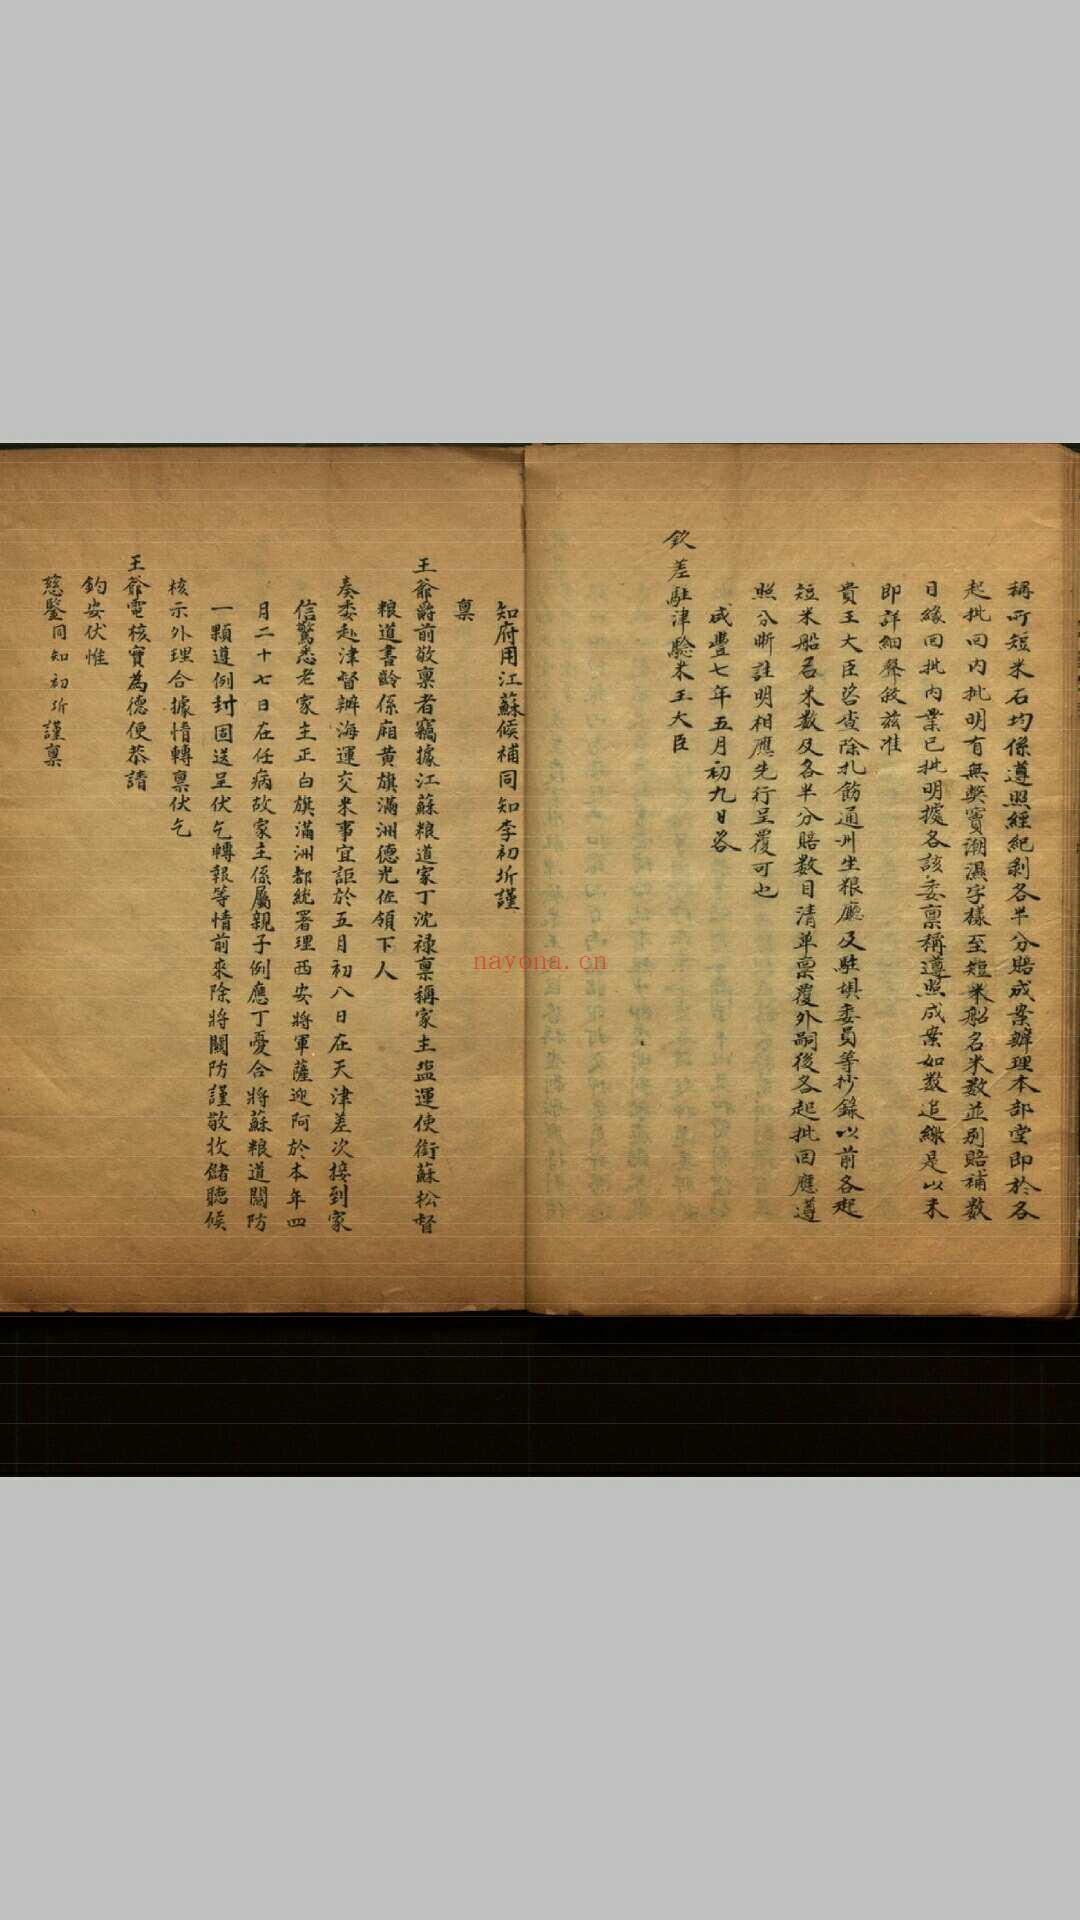 稱所短米石均係遵照經紀剥各半分賠成案辦理本部堂即於各
起批回内批明有無獘竇潮濕字樣至短米船名米数並列賠補数
日緣回批内業已批明據各該委禀稱遵照成案如数追繳是以未
即詳細聲敘茲准
貴王大臣咨查除札飭通州坐粮廳及駐埧委員等抄錄以前各起
短米船名米数及各半分賠数目清单禀覆外嗣後各起批回應遵
照分晰註明相應先行呈覆可也
咸豐七年五月初九日咨
欽差駐津驗米王大臣
知府用江蘇候補同知李初圻謹
禀
王爺爵前敬禀者竊據江蘇粮道家丁沈禄禀稱家主盐運使銜蘇松督
粮道書齡係廂黄旗滿洲德光佐領下人
奏委赴津督辦海運交米事宜詎於五月初八日在天津差次接到家
信驚悉老家主正白旗滿洲都統署理西安將軍薩迎阿於本年四
月二十七日在任病故家主係属親子例應丁憂合將蘇粮道關防
一顆遵例封固送呈伏乞轉報等情前來除將關防謹敬收儲聽候
核示外理合據情轉禀伏乞
王爺電核實為德便恭請
鈞安伏惟
慈鑒同知初圻謹禀
nayona.cn